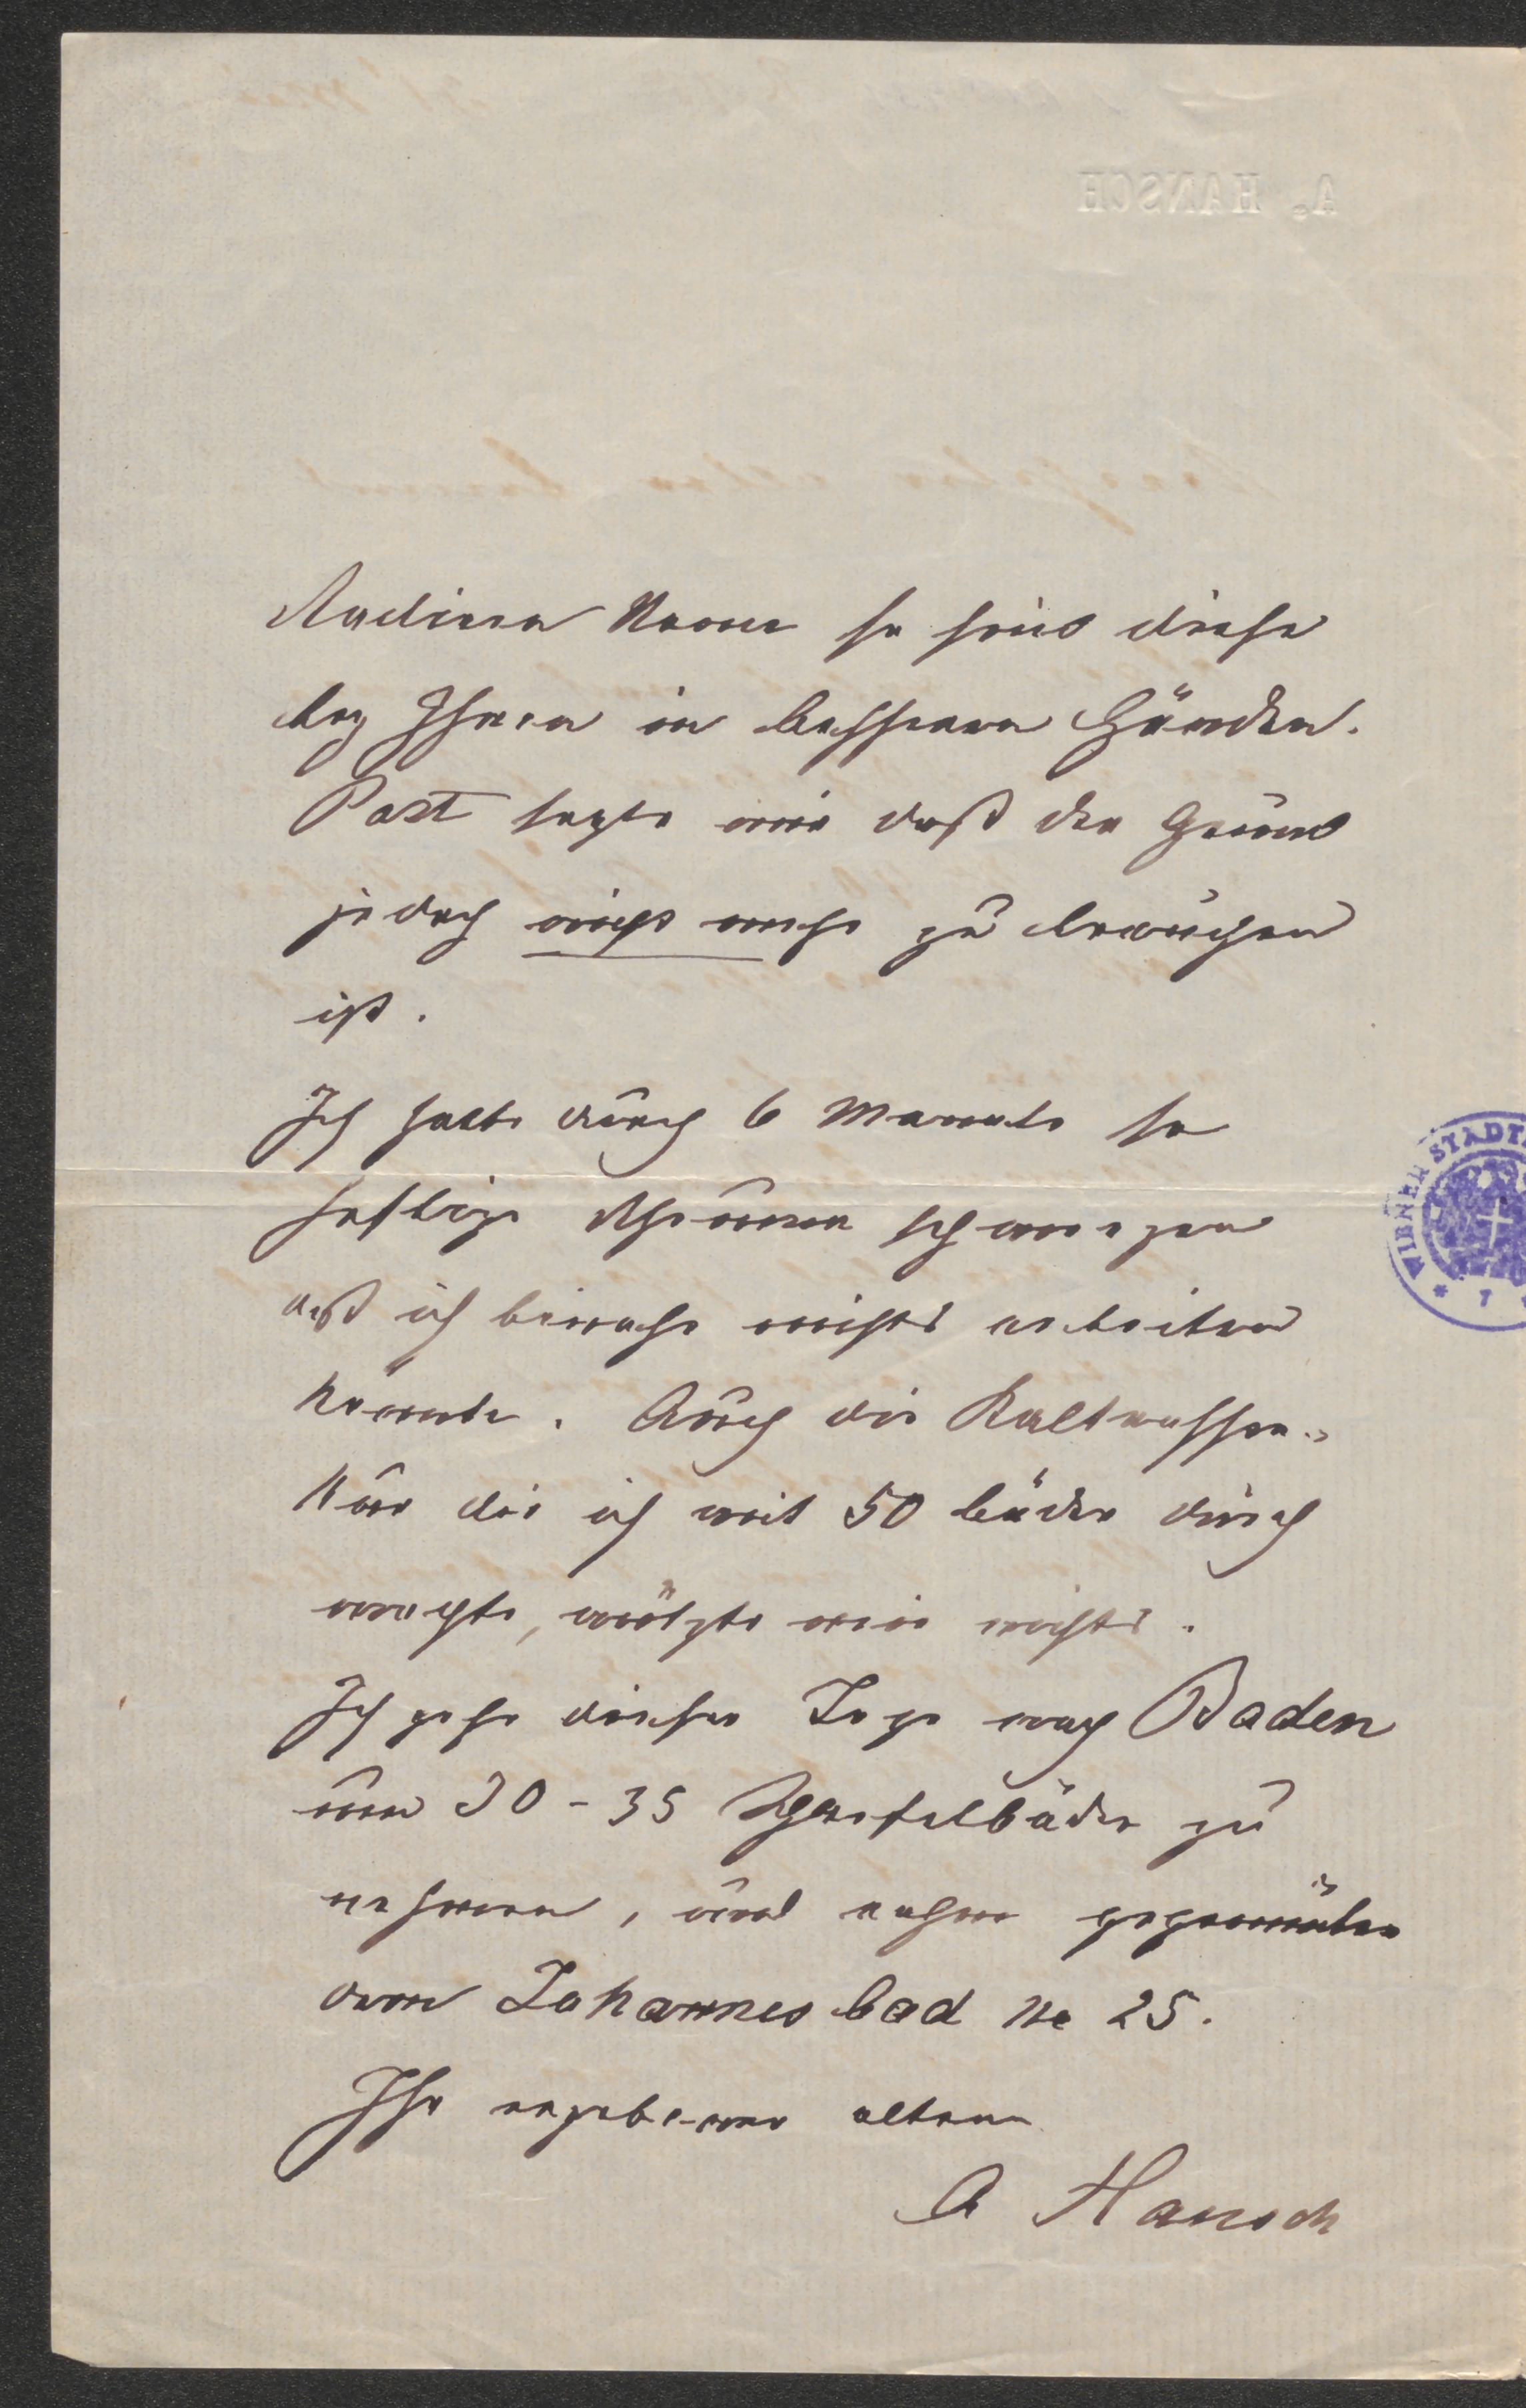 A. HANSCH
Studien kann so sind diese
bey Ihnen in besseren Händen.
Post sagte mir daß der Grund
jedoch nicht mehr zu brauchen
ist.
Ich hatte durch 6 Monate so
heftige Rheumaschmerzen
daß ich beinahe nichts arbeiten
konnte. Auch die Kaltwasser-
kur die ich mit 50 Bäder durch
machte, nützte mir nichts.
Ich gehe dieser Tage nach Baden
um 30-35 Schwefelbäder zu
nehmen, und wohne gegenüber
dem Johannesbad No 25.
Ihr ergebener alter
A Hansch
WIENER STADT
* 7